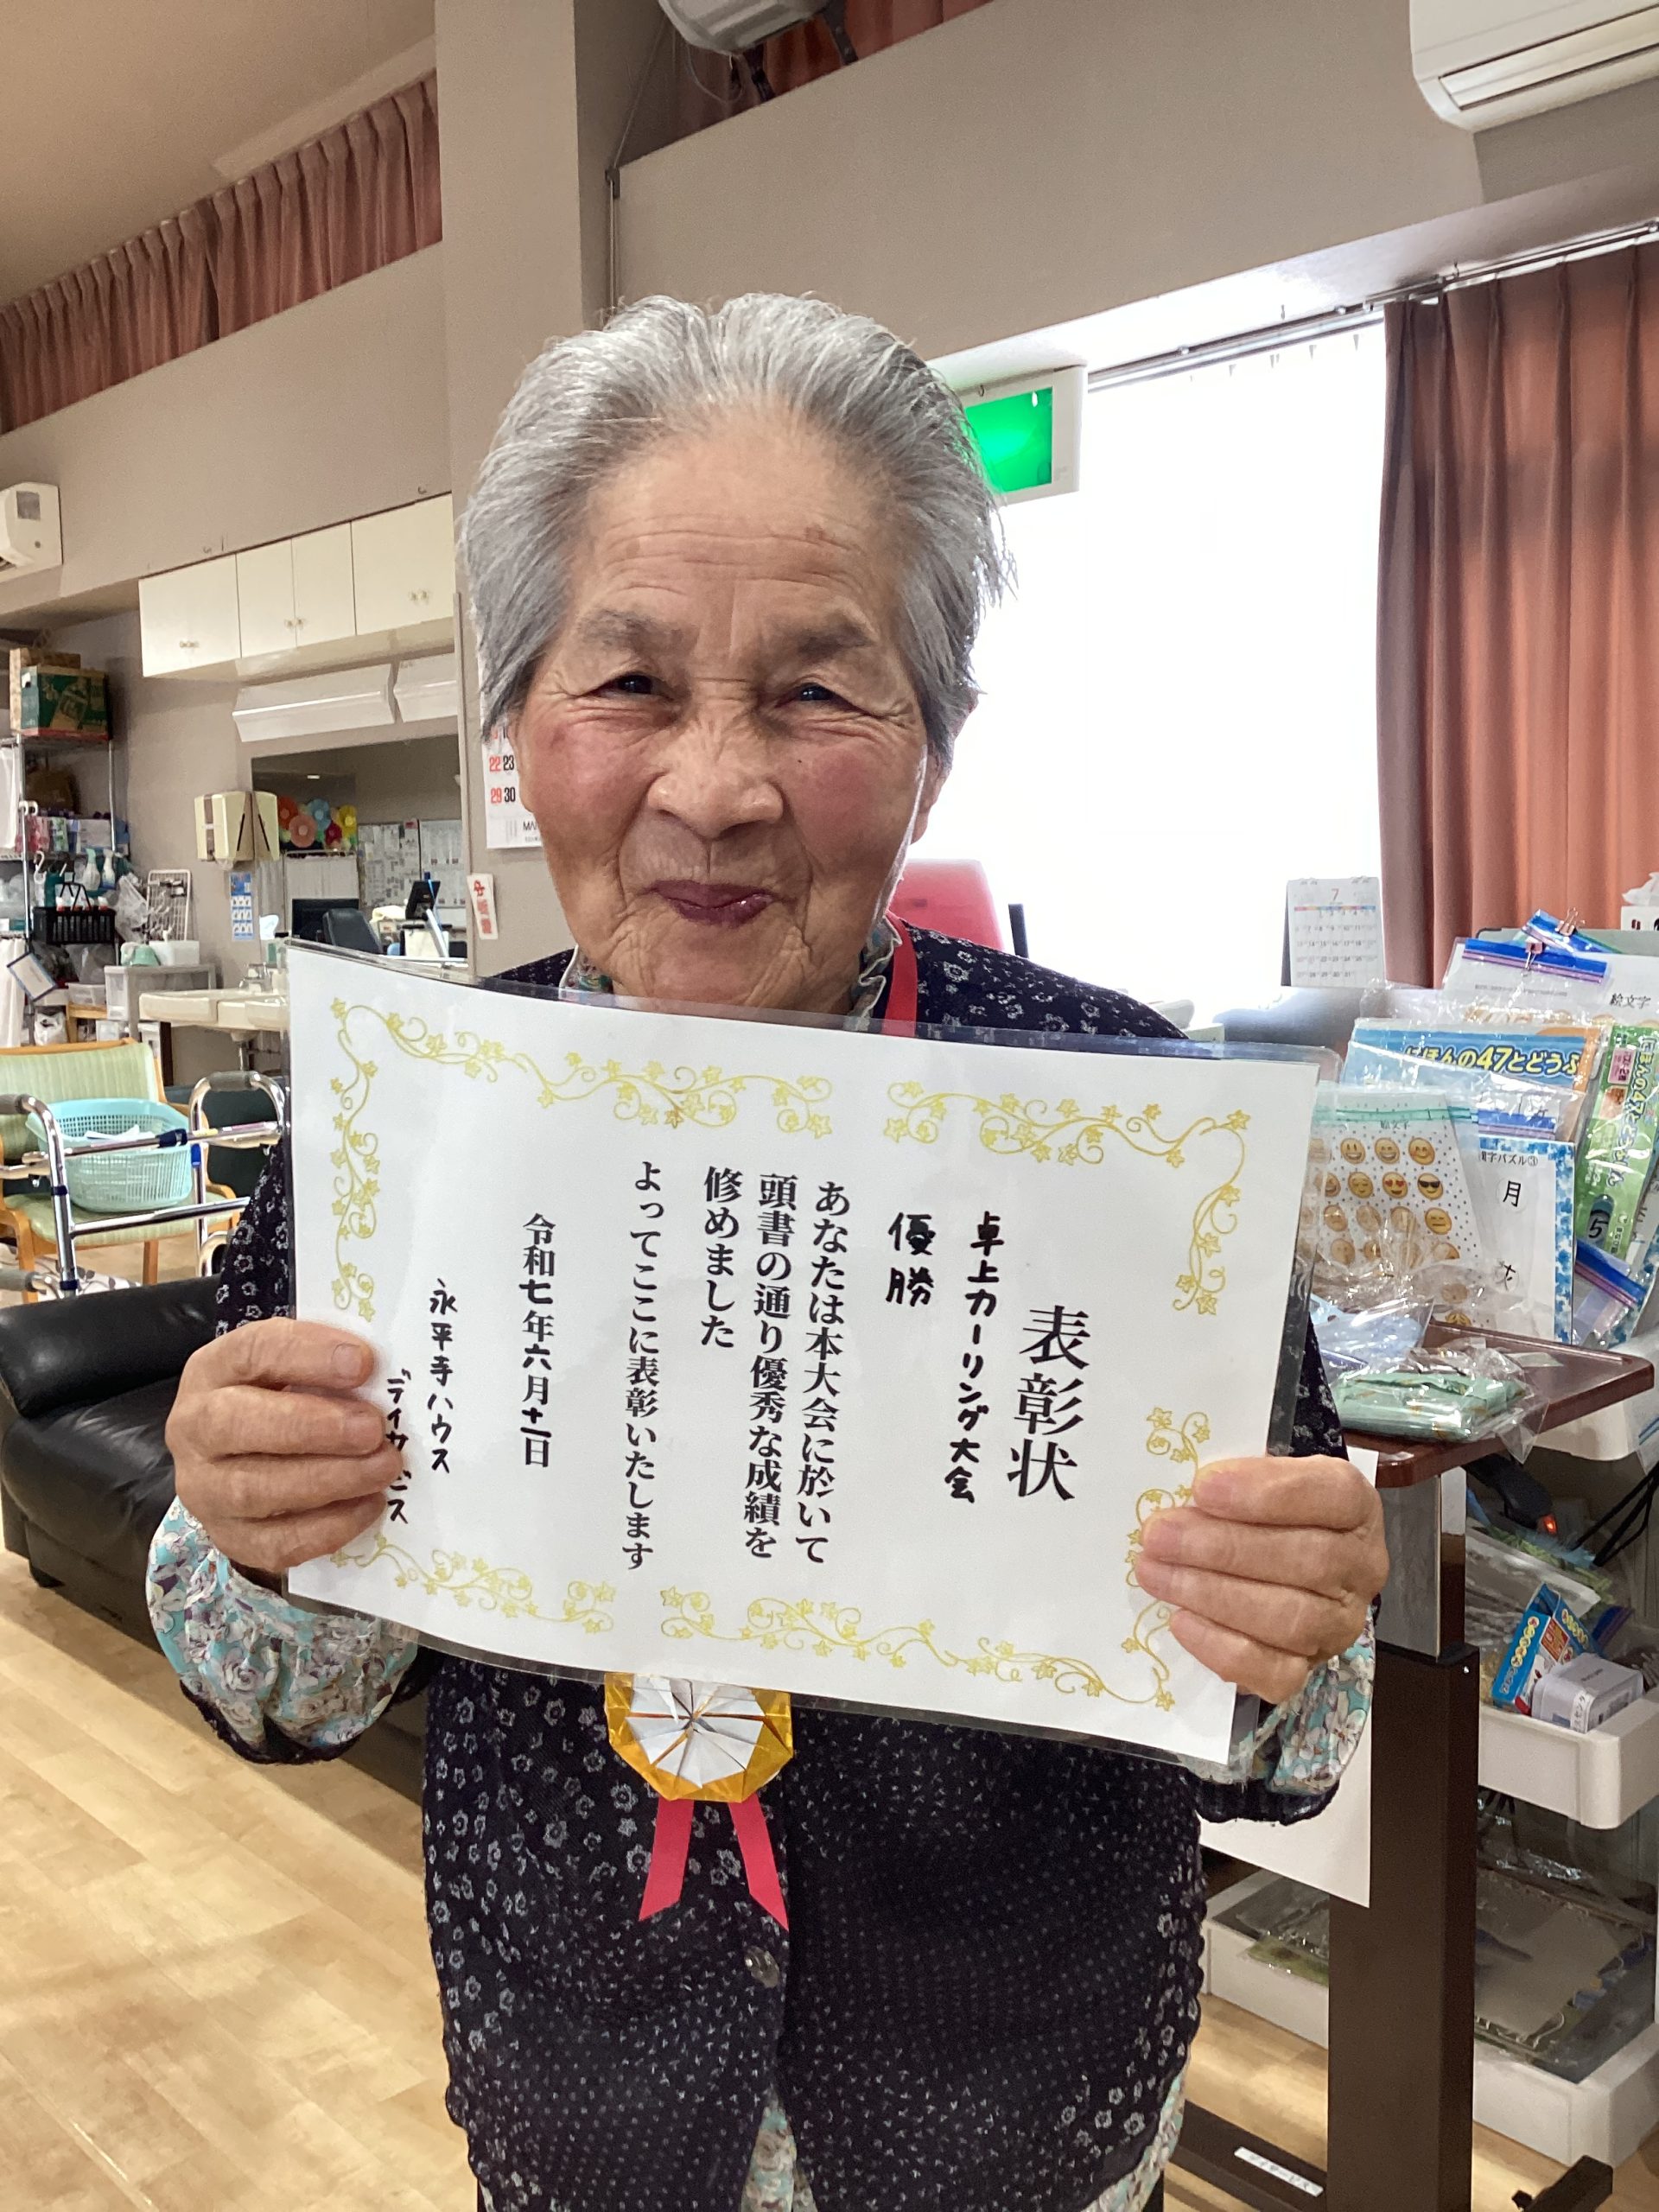 表彰状
卓上カーリング大会
優勝
あなたは本大会に於いて
頭書の通り優秀な成績を
修めました
よってここに表彰いたします
令和七年六月十一日
永平寺ハウス
22 23
29 30
7
絵文字
にほんの47とどうふ
絵文字
月
5